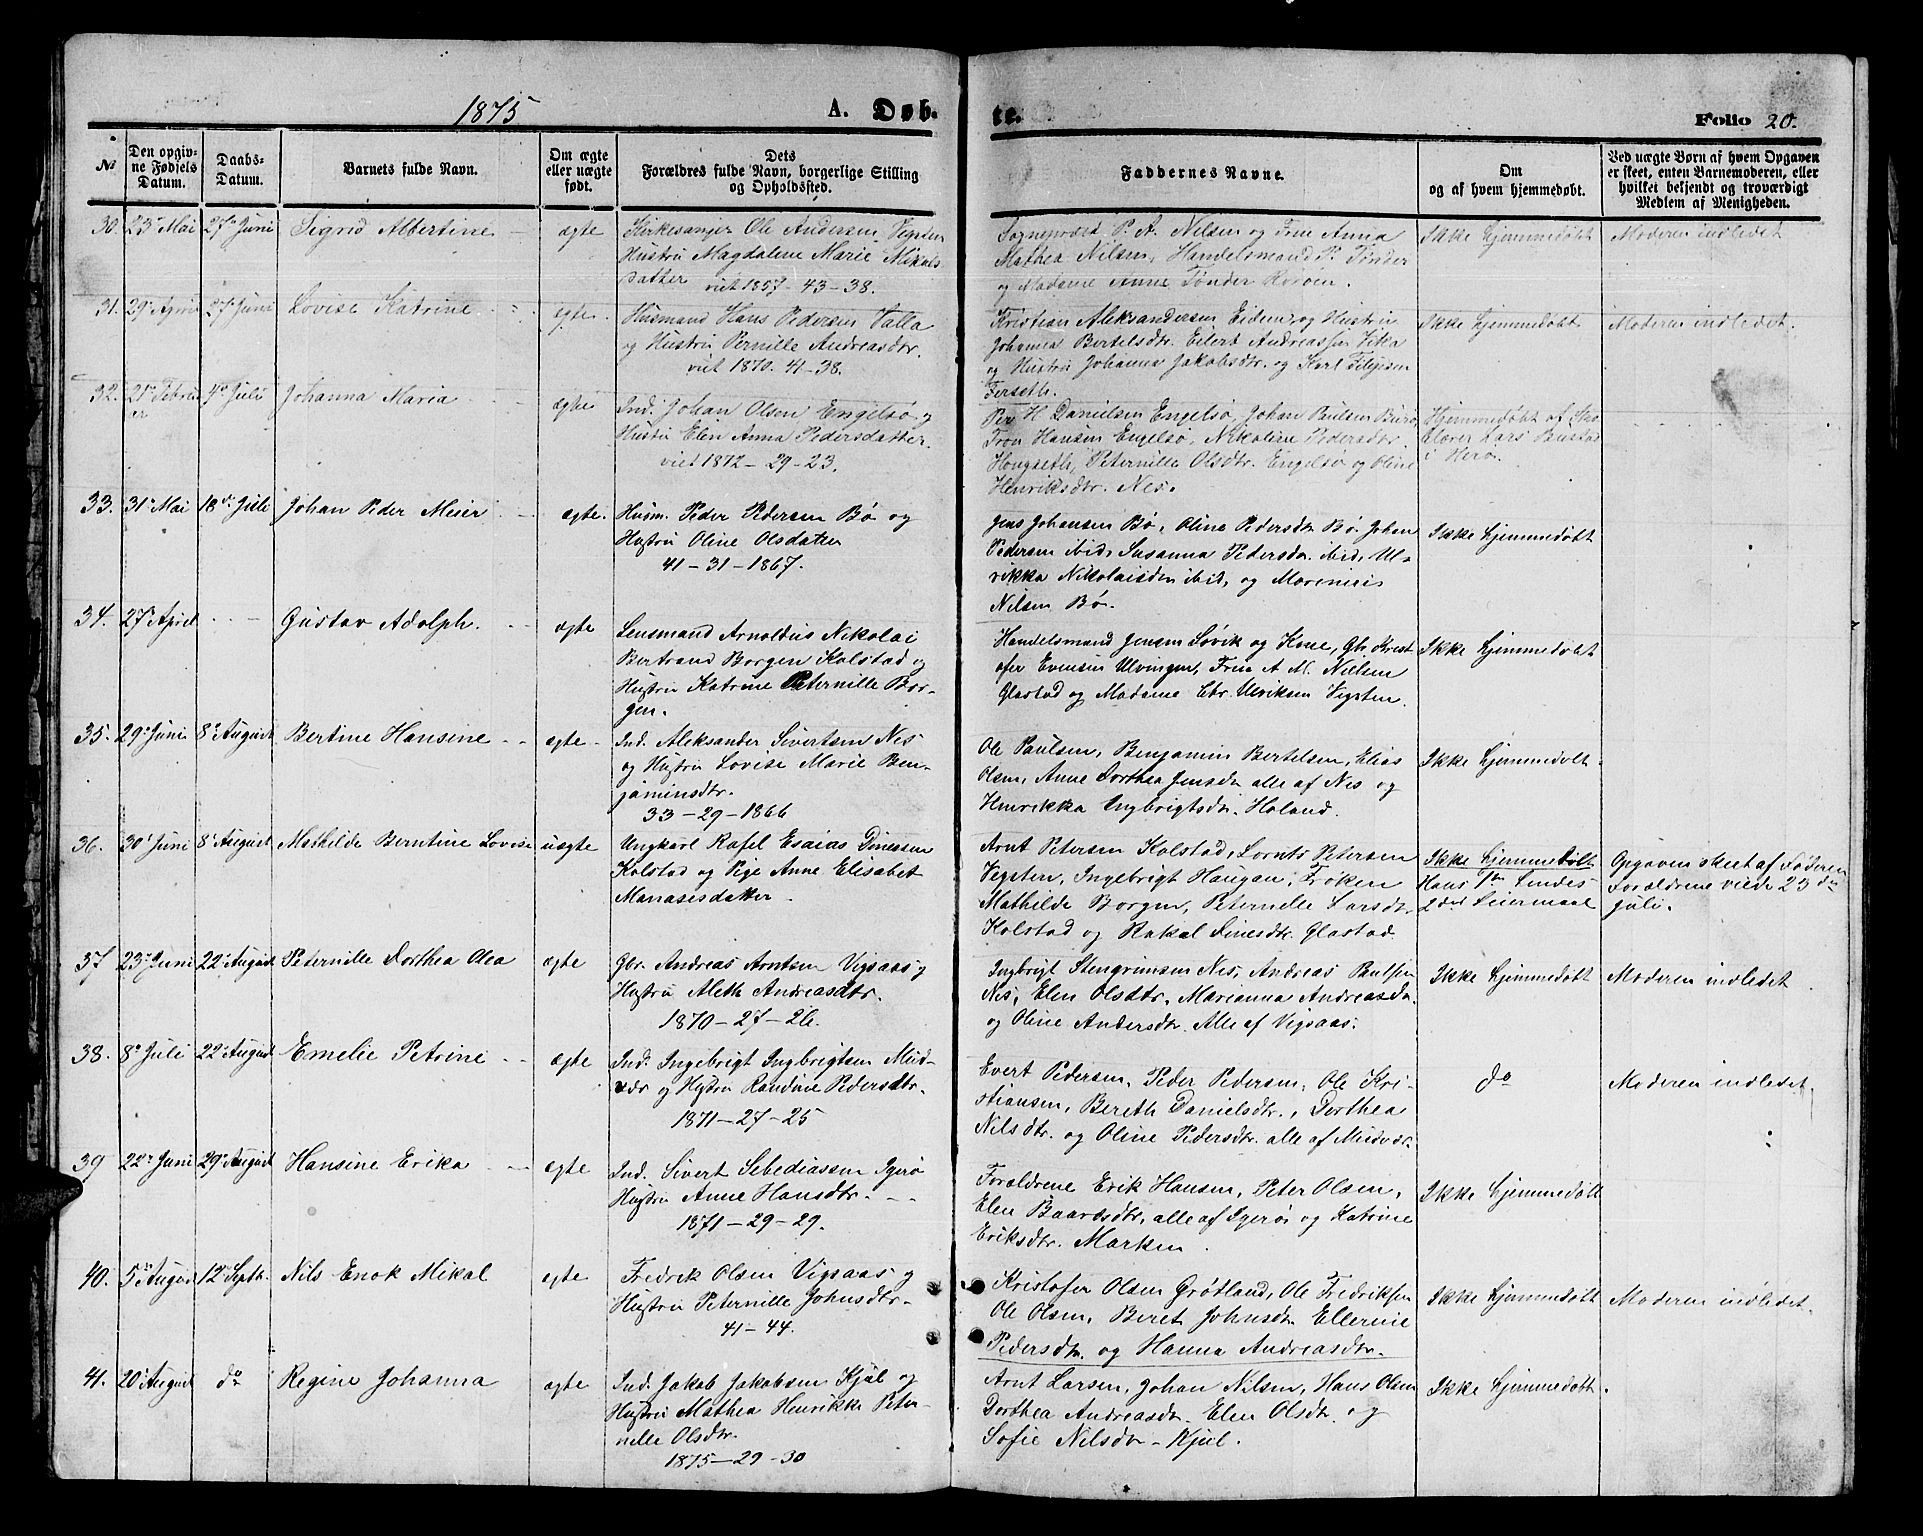 1875
A. Døb-
te.
Folio 20.
No
Den opgiv-
ne Fødsels
Datum.
Daabs-
Datum.
Barnets fulde Navn.
Om ægte
eller uægte
født.
Dets
Forældres fulde Navn, borgerlige Stilling
og Opholdssted.
Faddernes Navne.
Om
og af hvem hjemmedøbt.
Ved uægte Børn af hvem Opgaven
er skeet, enten Barnemoderen, eller
hvilket bekjendt og troværdigt
Medlem af Menigheden.
30. 23de Mai 27de Juni Sigrid Albertine ægte
Kirkesanger Ole Andersen Vegsten
Hustru Magdalene Marie Mikals
datter viet 1857 - 43 - 38.
Sogneprest P. A. Nilsen og Frue Anna
Mathea Nilsen, Handelsmand P. Tønder
og Madame Anne Tønder
Ikke hjemmedøbt
Moderen indledet
31. 29de April 27de Juni Lovise Katrine ægte
Husmand Hans Pedersen Valla
og Hustru Pernille Andreasdtr.
viet 1870. 41 - 38.
Kristian Aleksandersen Eidem og Hustru
Johanna Bertelsdtr. Eilert Andreassen Vika
og Hustru Johanna Jakobsdtr. og Karl Filipsen
Ferseth.
Ikke hjemmedøbt
Moderen indledet.
32. 21de Febru
er 4de Juli Johanna Maria ægte
Ind. Johan Olsen Engelsø og
Hustru Elen Anna Pedersdatter.
viet 1872 - 29 - 23.
Per H Danielsen Engelsø, Johan Paulsen Burø
Tron Hansen Engelsø, Nikoline Pedersdtr.
Hongseth, Peternille Olsdtr. Engelsø og Oline
Henriksdtr. Nes.
Hjemmedøbt af
Lærer Lars
i Herø
33. 31te Mai 18de Juli Johan Peder Meier ægte.
Husm. Peder Pedersen Bø og
Hustru Oline Olsdatter
41 - 31 - 1867.
Jens Johansen Bø, Oline Pedersdtr Bø. Johan
Pedersen ibid, Susanna Pedersdtr. ibid, Ul-
rikka Nikolaisdtr ibid, og Morenius
Nilsen Bø.
Ikke hjemmedøbt
34. 27de April Gustav Adolph. ægte
Lensmand Arnoldus Nikolai
Bertrand Borgen Kolstad og
Hustru Katrine Peternille Bor-
gen.
Handelsmand Jensen Søvik og Kone, Gbr. Krist
ofer Evensen Ulvingen, Frue A. M. Nielsen
Glastad og Madame Chr. Ulriksen Vegsten.
Ikke hjemmedøbt
35. 29de Juni 8de August Bertine Hansine ægte
Ind. Aleksander Sivertsen Nes
og Hustru Lovise Marie Ben-
jaminsdtr.
33 - 29 - 1866
Ole Paulsen, Benjamin Bertelsen, Elias
Olsen, Anne Dorthea Jensdtr alle af Nes og
Henrikka Ingbrigtsdtr. Haland.
Ikke hjemmedøbt.
36. 30te Juni 8de August Mathilde Berntine Lovise uægte
Ungkarl Rafel Esaias Dinessen
Kolstad og Pige Anne Elisabet
Manasesdatter.
Arnt Petersen Kolstad, Lornts Petersen
Vegsten, Ingebrigt Haugan, Frøken
Mathilde Borgen, Peternelle Larsdtr.
Kolstad og Rakel Dinesdtr. Glastad.
Ikke hjemmedøbt
Hans 1ste Hendes
2det Leiermaal
Opgaven skeet af Faderen
Forældrene viede 25de
Juli.
37 23de Juni 22de August Peternille Dorthea Olea ægte
Gbr. Andreas Arntsen Vigsaas og
Hustru Aleth Andreasdtr.
1870 - 27 - 26.
Ingbrigt Stengrimsen Nes, Andreas Paulsen
Nes, Elen Olsdtr, Marianna Andreasdtr.
og Oline Andersdtr. Alle af Vigsaas.
Ikke hjemmedøbt
Moderen indledet
38. 8de Juli 22de August Emelie Petrine ægte
Ind. Ingebrigt Ingbrigtsen Mud-
vær og Hustru Randine Pedersdtr.
1871 - 27 - 25
Evert Pedersen, Peder Pedersen, Ole Kri-
stiansen, Bereth Danielsdtr., Dorthea
Nilsdtr. og Oline Pedersdtr. alle af Mudvær.
do
Moderen indledet.
39 22de Juni 29de August Hansine Erika ægte
Ind. Sivert Sebediassen Igerø
Hustru Anne Hansdtr.
1871 - 29 - 29.
Forældrene Erik Hansen, Peter Olsen,
Elen Baardsdtr, alle af Igerø og Katrine
Eriksdtr. Marken.
Ikke hjemmedøbt
40. 5te August 12te Septb. Nils Enok Mikal ægte
Fredrik Olsen Vigsaas og
Hustru Peternille Johnsdtr.
41 - 44.
Kristofer Olsen Grøtland, Ole Fredriksen
Ole Olsen, Beret Johnsdtr Ellevine
Pedersdtr. og Hanna Andreasdtr.
Ikke hjemmedøbt
Moderen indledet.
41. 20de August do Regine Johanna ægte
Ind. Jakob Jakobsen Kjul og
Hustru Mathea Henrikke Peter-
nelle Olsdtr.
1875 - 29 - 30
Arnt Larsen, Johan Nilsen, Hans Olsen
Dorthea Andreasdtr. Elen Olsdtr. og
Sofie Nilsdtr - Kjul.
Ikke hjemmedøbt.